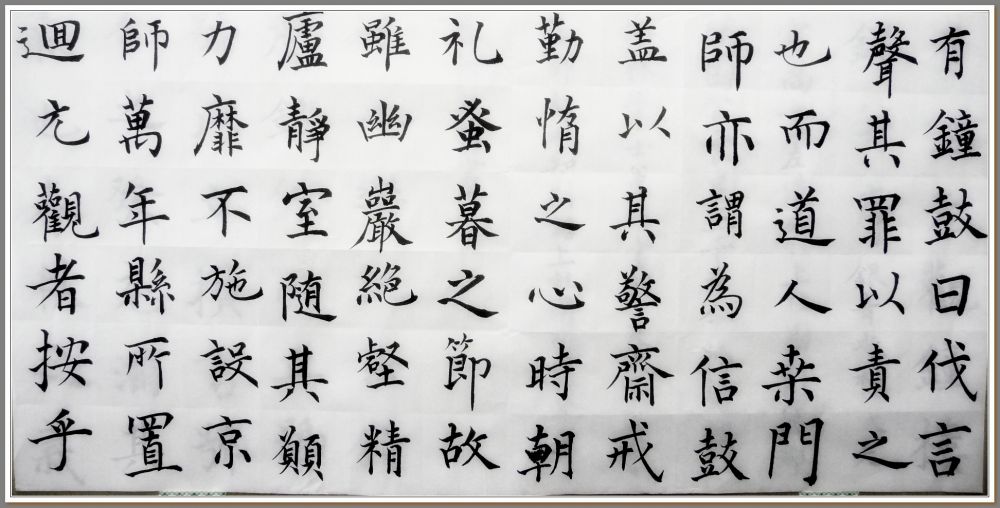 有鐘鼓曰伐言
聲其罪以責之
也而道人桒門
師亦謂為信鼓
盖以其警齋戒
勤惰之心時朝
礼蚤暮之節故
雖幽巖絕壑精
廬靜室随其願
力靡不施設京
師萬年縣所置
迴元觀者按乎